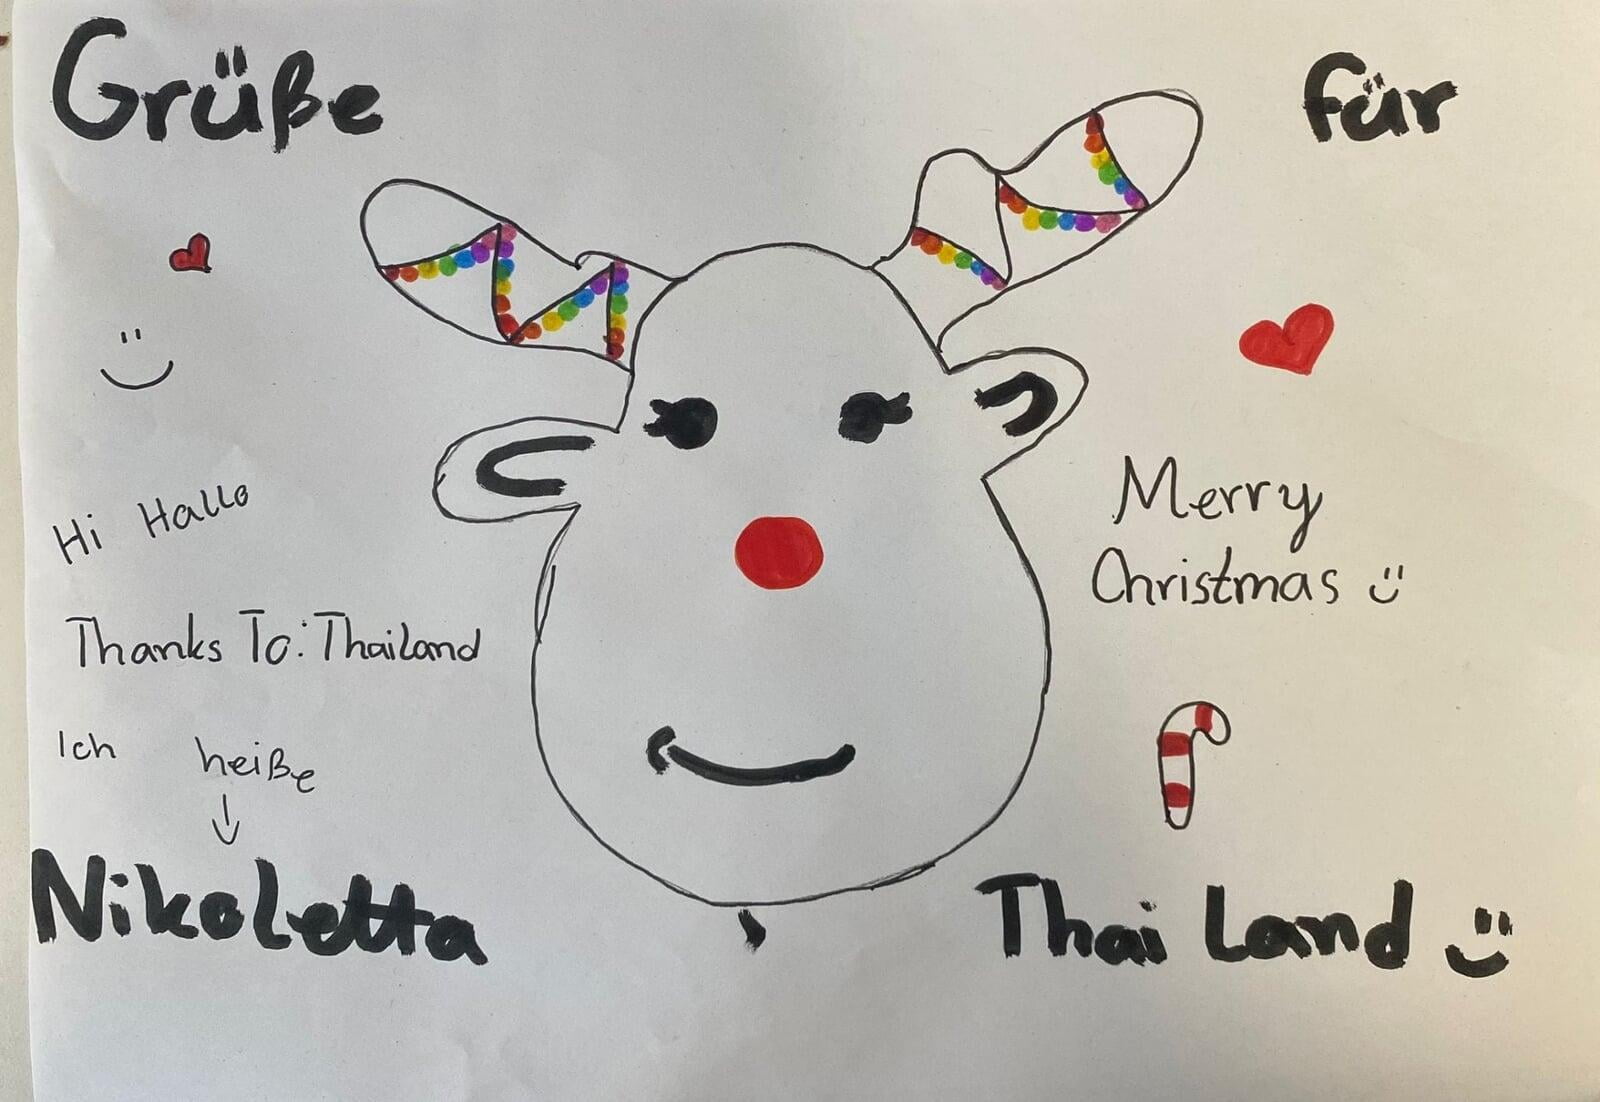 Grüße für
Hi Hallo
Merry
Christmas
Thanks To: Thailand
Ich heiße
Nikoletta
Thai Land